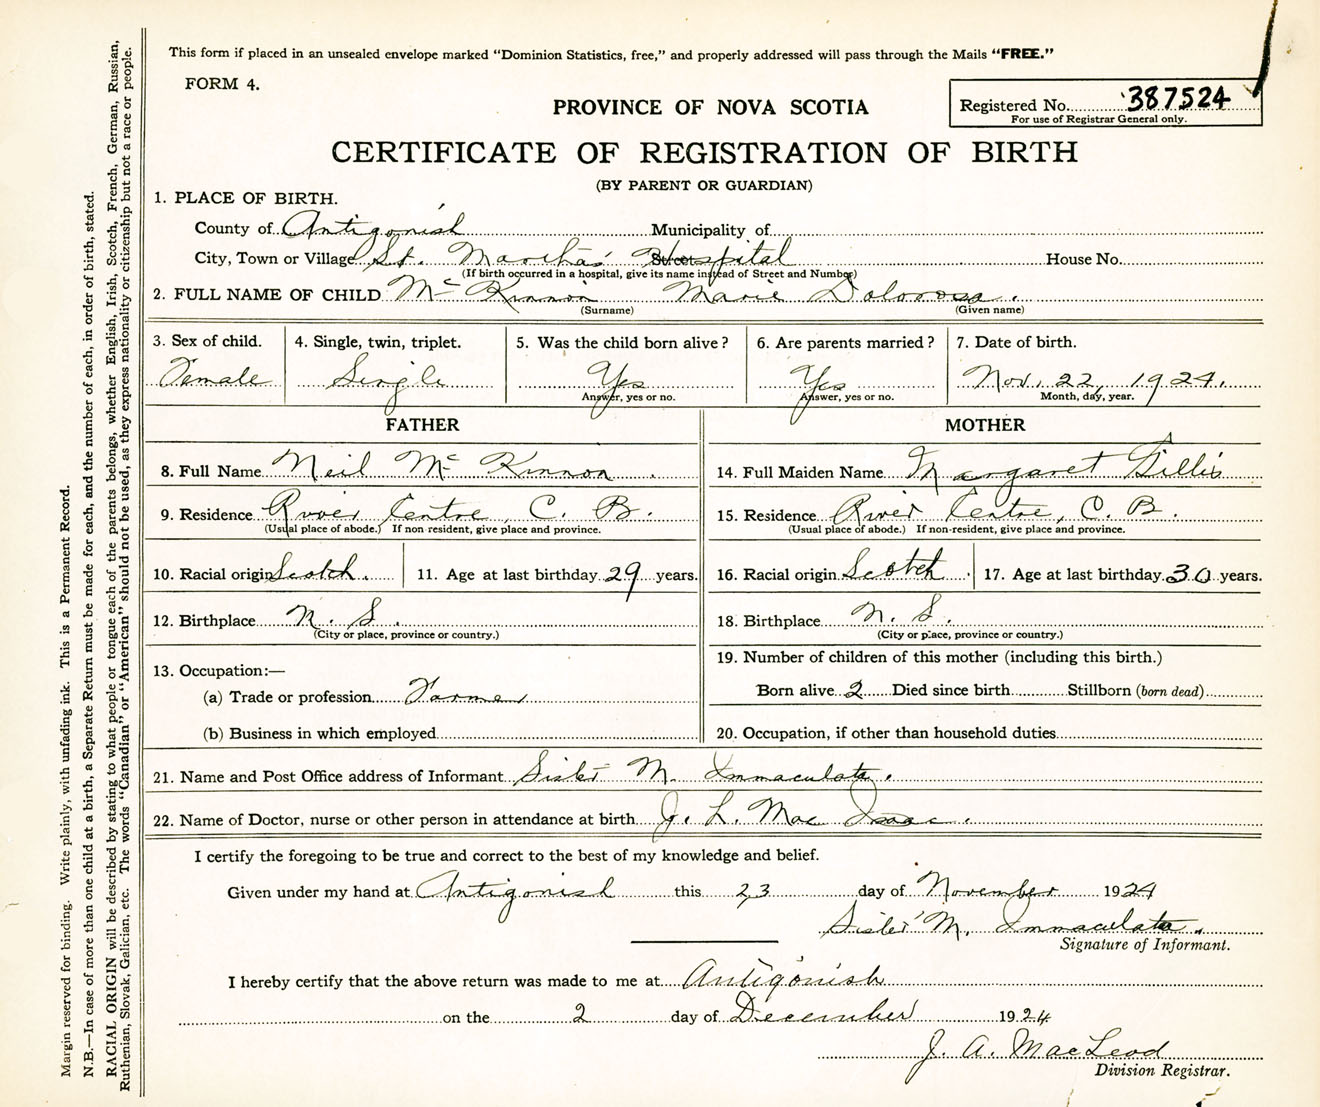 This form if placed in an unsealed envelope marked "Dominion Statistics, free," and properly addressed will pass through the Mails "FREE."
FORM 4.
PROVINCE OF NOVA SCOTIA
Registered No. 387524
For use of Registrar General only.
CERTIFICATE OF REGISTRATION OF BIRTH
(BY PARENT OR GUARDIAN)
1. PLACE OF BIRTH.
County of Antigonish Municipality of
City, Town or Village St. Martha's Hospital Street House No.
(If birth occurred in a hospital, give its name instead of Street and Number)
2. FULL NAME OF CHILD Mc Kinnon Marie Dolorosa.
(Surname) (Given name)
3. Sex of child. 4. Single, twin, triplet. 5. Was the child born alive? 6. Are parents married? 7. Date of birth.
Female Single Yes Yes Nov. 22, 1924.
Answer, yes or no. Answer, yes or no. Month, day, year.
FATHER MOTHER
8. Full Name Neil Mc Kinnon. 14. Full Maiden Name Margaret Gillis
9. Residence River Centre, C. B. 15. Residence River Centre, C. B.
(Usual place of abode.) If non-resident, give place and province. (Usual place of abode.) If non-resident, give place and province.
10. Racial origin Scotch. 11. Age at last birthday 29 years. 16. Racial origin Scotch. 17. Age at last birthday 30 years.
12. Birthplace N. S. 18. Birthplace N. S.
(City or place, province or country.) (City or place, province or country.)
13. Occupation:— 19. Number of children of this mother (including this birth.)
(a) Trade or profession Farmer Born alive 2 Died since birth Stillborn (born dead)
(b) Business in which employed 20. Occupation, if other than household duties
21. Name and Post Office address of Informant Sister M. Immaculata.
22. Name of Doctor, nurse or other person in attendance at birth J. L. Mac Isaac.
I certify the foregoing to be true and correct to the best of my knowledge and belief.
Given under my hand at Antigonish this 23 day of November 1924
Sister M. Immaculata.
Signature of Informant.
I hereby certify that the above return was made to me at Antigonish
on the 2 day of December 1924
J. A. MacLeod
Division Registrar.
Margin reserved for binding. Write plainly, with unfading ink. This is a Permanent Record.
N.B.—In case of more than one child at a birth, a Separate Return must be made for each, and the number of each, in order of birth, stated.
RACIAL ORIGIN will be described by stating to what people or tongue each of the parents belongs, whether English, Irish, Scotch, French, German, Russian,
Ruthenian, Slovak, Galician, etc. The words "Canadian" or "American" should not be used, as they express nationality or citizenship but not a race or people.